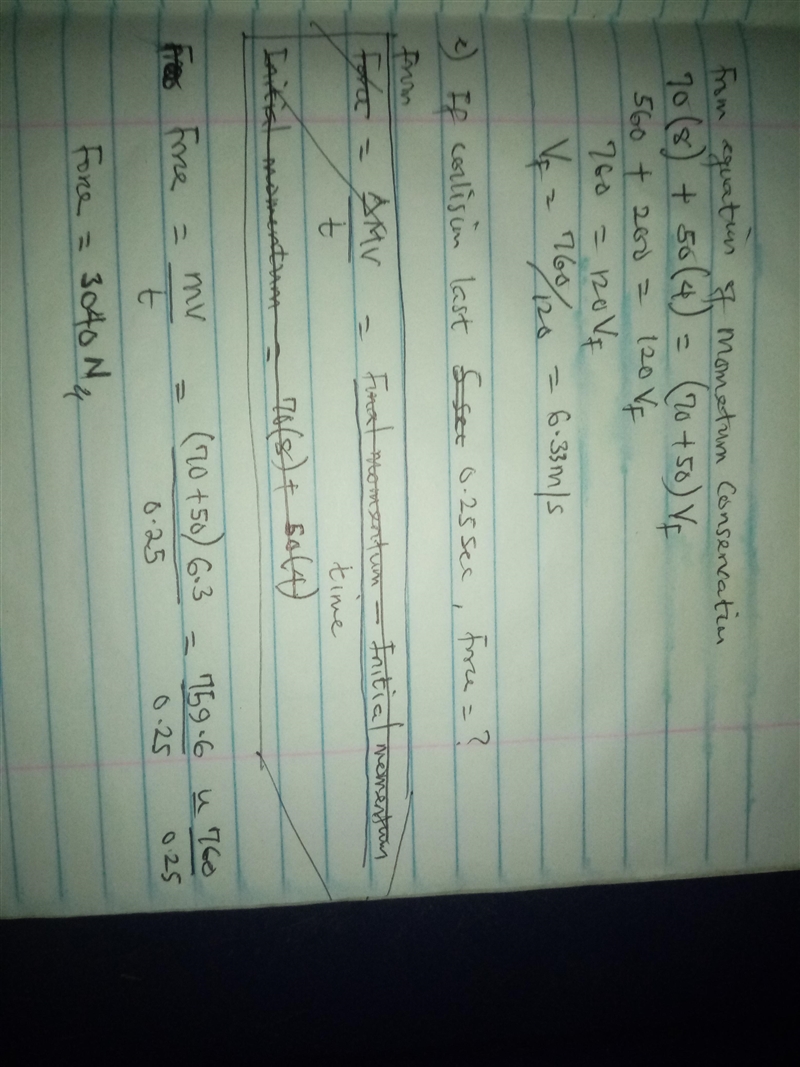 From equation of Mometum Conservation
70(8) + 50(4) = (70+50)VF
560 + 200 = 120VF
760 = 120VF
VF = 760/120 = 6.33m/s
c) If collision last 5 sec 0.25sec, force = ?
From
Force = ΔMV/t = Final momentum - Initial momentum / time
Initial momentum = 70(8) + 50(4)
Force = mv/t = (70+50)6.3/0.25 = 759.6/0.25 ≈ 760/0.25
Force = 3040N